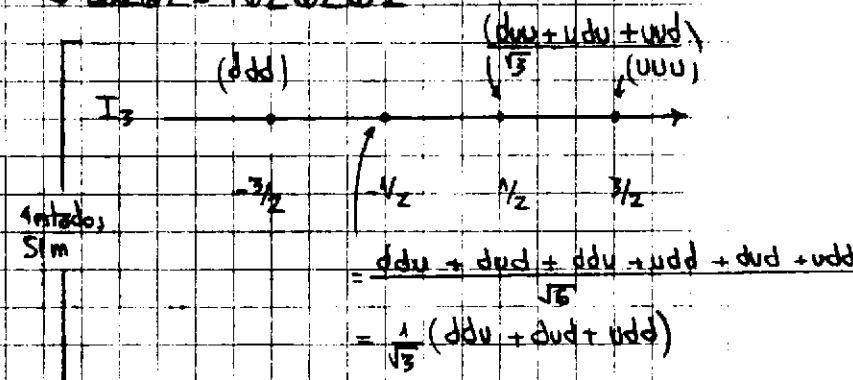 (duu + udu + uud)
√3
(ddd)
(uuu)
I₃
-3/2 -1/2 1/2 3/2
4 estados
Sim
= ddu + dud + ddu + udd + dud + udd
√6
= 1/√3 (ddu + dud + udd)